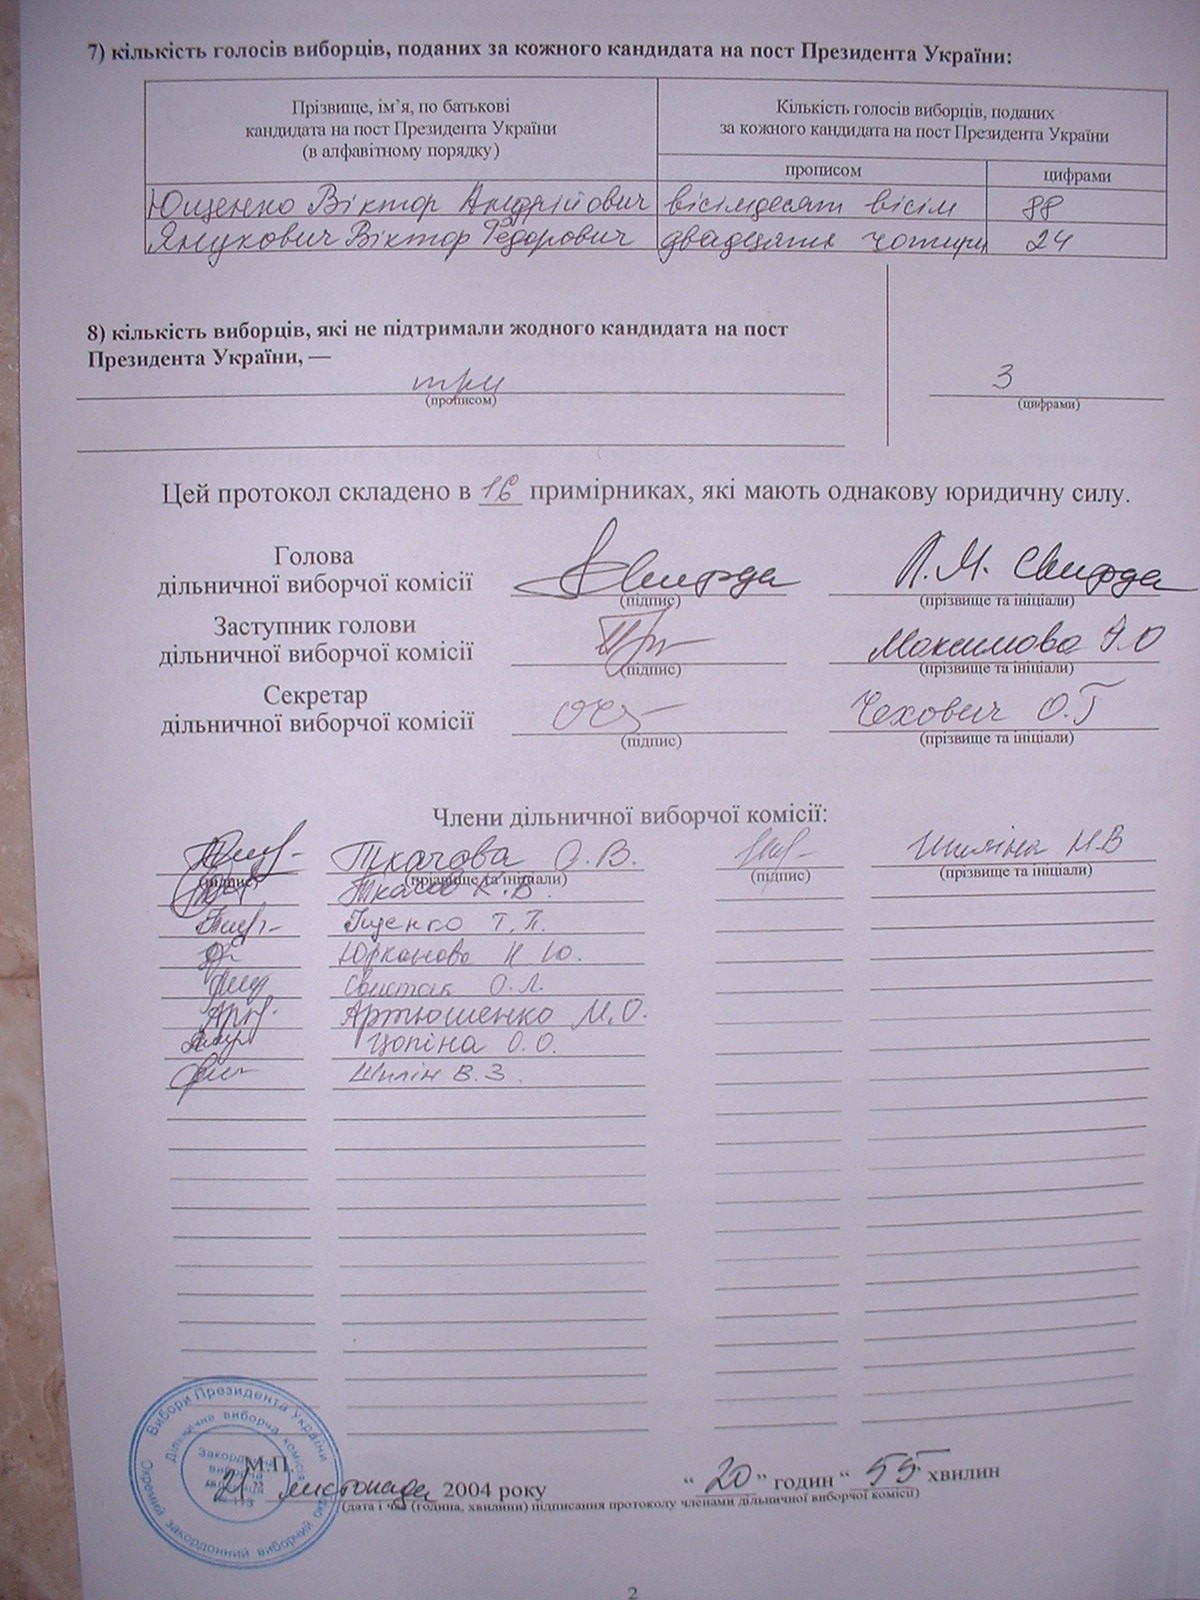 7) кількість голосів виборців, поданих за кожного кандидата на пост Президента України:
Прізвище, ім’я, по батькові
кандидата на пост Президента України
(в алфавітному порядку)
Кількість голосів виборців, поданих
за кожного кандидата на пост Президента України
прописом
цифрами
Ющенко Віктор Андрійович вісімдесят вісім 88
Янукович Віктор Федорович двадцять чотири 24
8) кількість виборців, які не підтримали жодного кандидата на пост
Президента України, —
три 3
(прописом) (цифрами)
Цей протокол складено в 16 примірниках, які мають однакову юридичну силу.
Голова
дільничної виборчої комісії
(підпис) (прізвище та ініціали)
Заступник голови
дільничної виборчої комісії Максимова
(підпис) (прізвище та ініціали)
Секретар
дільничної виборчої комісії Чехович О.Г
(підпис) (прізвище та ініціали)
Члени дільничної виборчої комісії:
Ткачова О.В. Шиліна Н.В
(підпис) (прізвище та ініціали) (підпис) (прізвище та ініціали)
К.В.
Т.П.
Юрканова Н Ю.
Свистак О.Л.
Артюшенко М.О.
Цопіна О.О.
Шилін В.З.
Вибори Президента України
Дільнична виборча комісія
Закордонна
виборча
дільниця
Окремий закордонний виборчий округ
М.П.
21 листопада 2004 року “ 20 ” годин “ 55 ” хвилин
(дата і час (година, хвилини) підписання протоколу членами дільничної виборчої комісії)
2